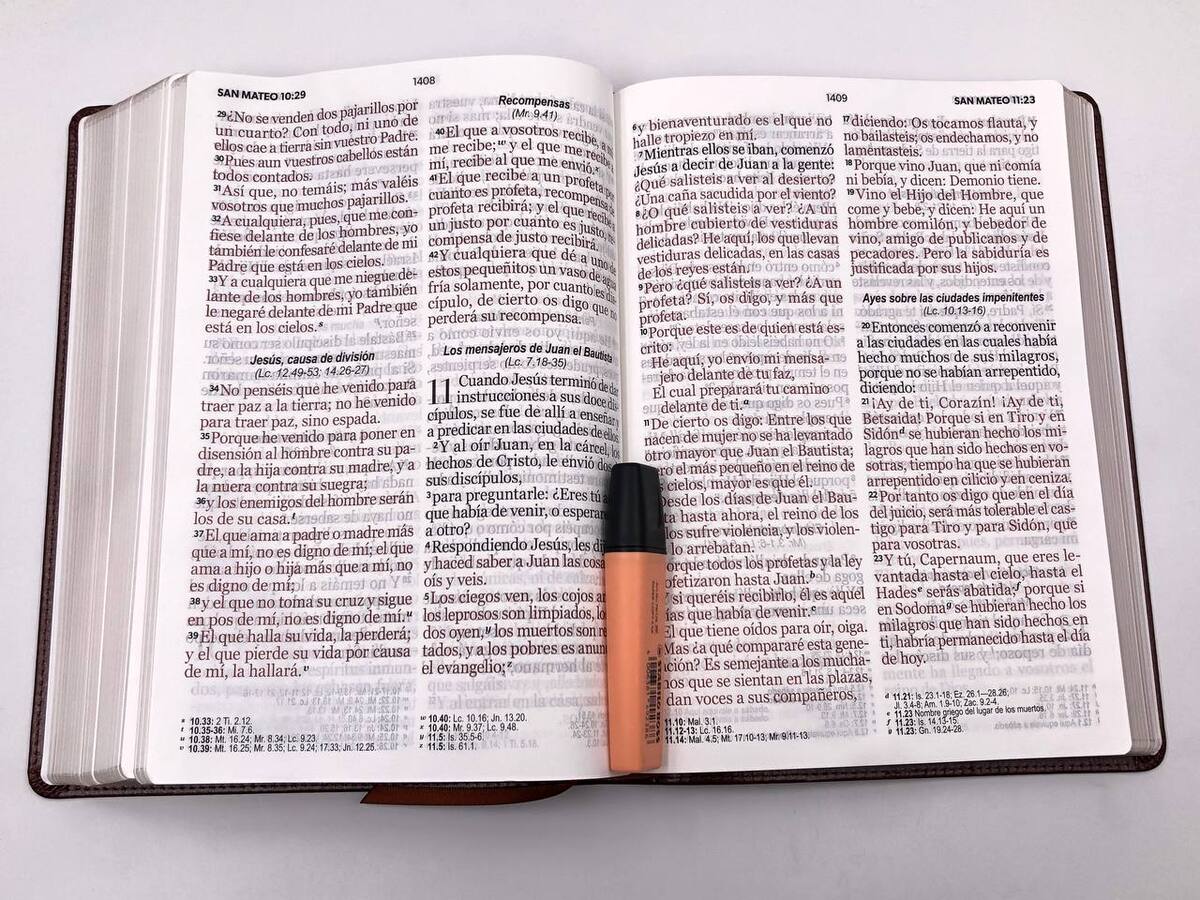 1408
SAN MATEO 10:29
29¿No se venden dos pajarillos por
un cuarto? Con todo, ni uno de
ellos cae a tierra sin vuestro Padre.
30Pues aun vuestros cabellos están
todos contados.
31Así que, no temáis; más valéis
vosotros que muchos pajarillos.
32A cualquiera, pues, que me con-
fiese delante de los hombres, yo
también le confesaré delante de mi
Padre que está en los cielos.
33Y a cualquiera que me niegue de-
lante de los hombres, yo también
le negaré delante de mi Padre que
está en los cielos.s
Jesús, causa de división
(Lc. 12.49-53; 14.26-27)
34No penséis que he venido para
traer paz a la tierra; no he venido
para traer paz, sino espada.
35Porque he venido para poner en
disensión al hombre contra su pa-
dre, a la hija contra su madre, y a
la nuera contra su suegra;
36y los enemigos del hombre serán
los de su casa.t
37El que ama a padre o madre más
que a mí, no es digno de mí; el que
ama a hijo o hija más que a mí, no
es digno de mí;
38y el que no toma su cruz y sigue
en pos de mí, no es digno de mí.u
39El que halla su vida, la perderá;
y el que pierde su vida por causa
de mí, la hallará.v
10.33: 2 Ti. 2.12.
10.35-36: Mi. 7.6.
10.38: Mt. 16.24; Mr. 8.34; Lc. 9.23.
10.39: Mt. 16.25; Mr. 8.35; Lc. 9.24; 17.33; Jn. 12.25.
Recompensas
(Mr. 9.41)
40El que a vosotros recibe, a
me recibe;w y el que me recibe
mí, recibe al que me envió.x
41El que recibe a un profeta
cuanto es profeta, recompensa
profeta recibirá; y el que recibe
un justo por cuanto es justo,
compensa de justo recibirá.
42Y cualquiera que dé a uno
estos pequeñitos un vaso de agua
fría solamente, por cuanto es dis-
cípulo, de cierto os digo que no
perderá su recompensa.
Los mensajeros de Juan el Bautista
(Lc. 7.18-35)
11 Cuando Jesús terminó de dar
instrucciones a sus doce dis-
cípulos, se fue de allí a enseñar y
a predicar en las ciudades de ellos.
2Y al oír Juan, en la cárcel, los
hechos de Cristo, le envió dos
sus discípulos,
3para preguntarle: ¿Eres tú
que había de venir, o esperare
a otro?
4Respondiendo Jesús, les dij
y haced saber a Juan las cosas
oís y veis.
5Los ciegos ven, los cojos
los leprosos son limpiados, lo
dos oyen,y los muertos son re
tados, y a los pobres es anun
el evangelio;z
10.40: Lc. 10.16; Jn. 13.20.
10.40: Mr. 9.37; Lc. 9.48.
11.5: Is. 35.5-6.
11.5: Is. 61.1.
1409
SAN MATEO 11:23
6y bienaventurado es el que no
halle tropiezo en mí.
7Mientras ellos se iban, comenzó
Jesús a decir de Juan a la gente:
¿Qué salisteis a ver al desierto?
¿Una caña sacudida por el viento?
8¿O qué salisteis a ver? ¿A un
hombre cubierto de vestiduras
delicadas? He aquí, los que llevan
vestiduras delicadas, en las casas
de los reyes están.
9Pero ¿qué salisteis a ver? ¿A un
profeta? Sí, os digo, y más que
profeta.
10Porque este es de quien está es-
crito:
He aquí, yo envío mi mensa-
jero delante de tu faz,
El cual preparará tu camino
delante de ti.a
11De cierto os digo: Entre los que
nacen de mujer no se ha levantado
otro mayor que Juan el Bautista;
ero el más pequeño en el reino de
s cielos, mayor es que él.
Desde los días de Juan el Bau-
ta hasta ahora, el reino de los
los sufre violencia, y los violen-
lo arrebatan.
orque todos los profetas y la ley
ofetizaron hasta Juan.b
Y si queréis recibirlo, él es aquel
ías que había de venir.c
El que tiene oídos para oír, oiga.
Mas ¿a qué compararé esta gene-
ación? Es semejante a los mucha-
hos que se sientan en las plazas,
dan voces a sus compañeros,
11.10: Mal. 3.1.
11.12-13: Lc. 16.16.
11.14: Mal. 4.5; Mt. 17.10-13; Mr. 9.11-13.
17diciendo: Os tocamos flauta, y
no bailasteis; os endechamos, y no
lamentasteis.
18Porque vino Juan, que ni comía
ni bebía, y dicen: Demonio tiene.
19Vino el Hijo del Hombre, que
come y bebe, y dicen: He aquí un
hombre comilón, y bebedor de
vino, amigo de publicanos y de
pecadores. Pero la sabiduría es
justificada por sus hijos.
Ayes sobre las ciudades impenitentes
(Lc. 10.13-16)
20Entonces comenzó a reconvenir
a las ciudades en las cuales había
hecho muchos de sus milagros,
porque no se habían arrepentido,
diciendo:
21¡Ay de ti, Corazín! ¡Ay de ti,
Betsaida! Porque si en Tiro y en
Sidónd se hubieran hecho los mi-
lagros que han sido hechos en vo-
sotras, tiempo ha que se hubieran
arrepentido en cilicio y en ceniza.
22Por tanto os digo que en el día
del juicio, será más tolerable el cas-
tigo para Tiro y para Sidón, que
para vosotras.
23Y tú, Capernaum, que eres le-
vantada hasta el cielo, hasta el
Hadese serás abatida;f porque si
en Sodomag se hubieran hecho los
milagros que han sido hechos en
ti, habría permanecido hasta el día
de hoy.
d 11.21: Is. 23.1-18; Ez. 26.1—28.26;
Jl. 3.4-8; Am. 1.9-10; Zac. 9.2-4.
e 11.23 Nombre griego del lugar de los muertos.
f 11.23: Is. 14.13-15.
g 11.23: Gn. 19.24-28.